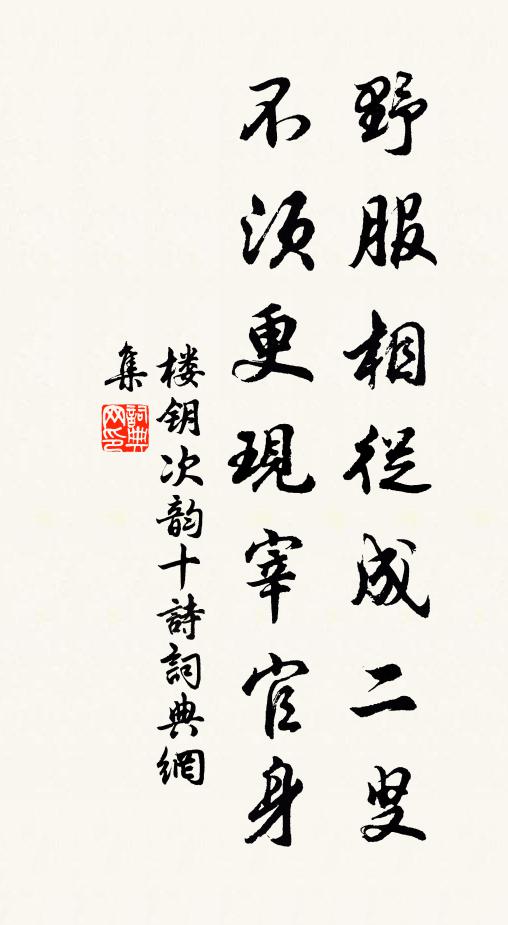 野服相從成二叟
不須更現宰官身
楼钥次韵十詩詞典網
集
詞典網印